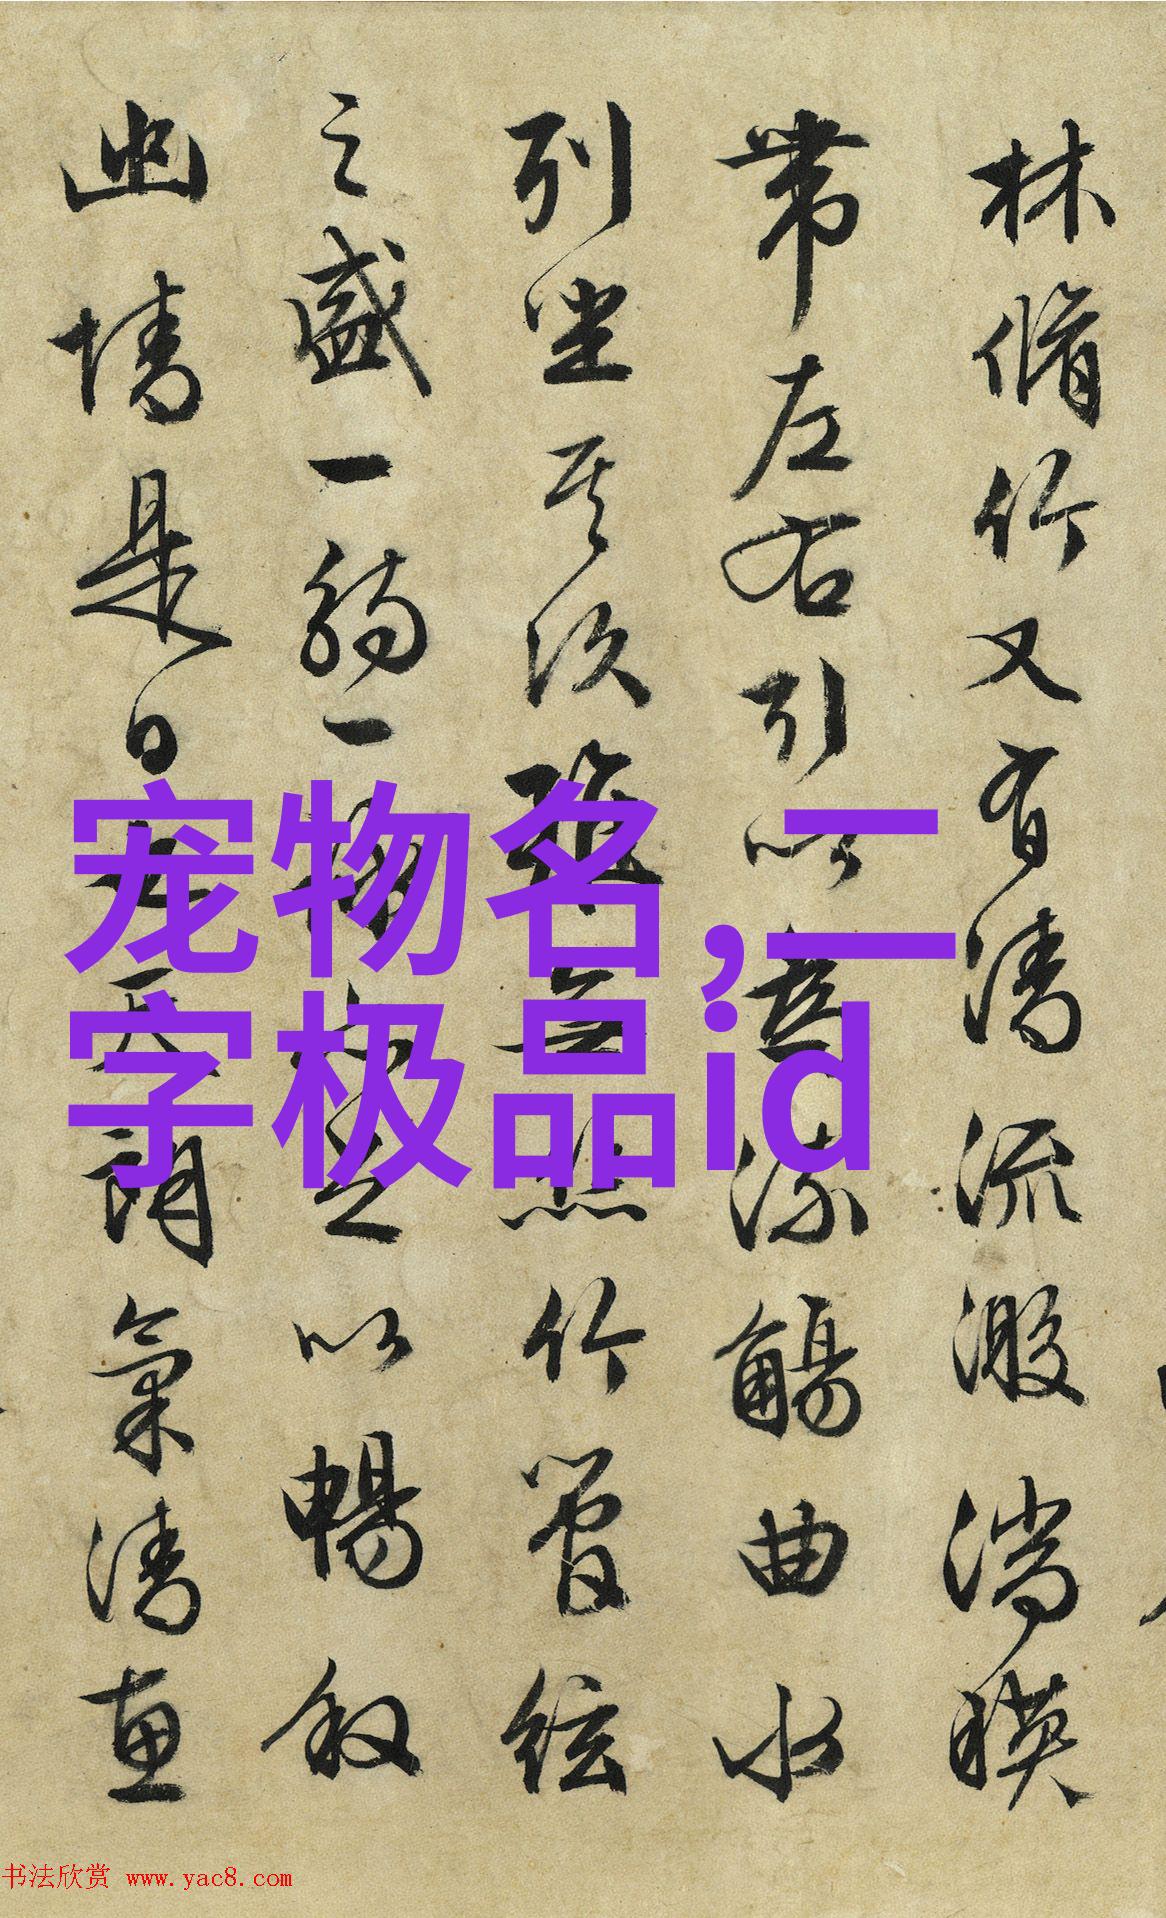 林脩竹又有清流激湍暎
帶左右引以為流觴曲水
列坐其次雖無絲竹管弦
之盛一觴一詠亦足以暢敘
幽情是日也天朗氣清惠
宠物名,二
字极品id
书法欣赏 www.yac8.com